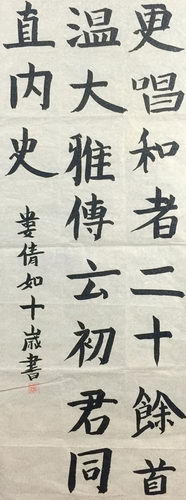 更唱和者二十餘首
温大雅傳云初君同
直内史
婁倩如十歲書